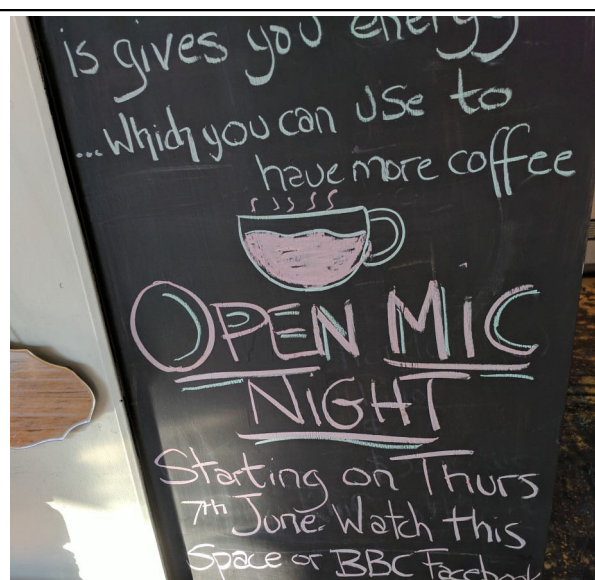 is gives you energy
...Which you can use to
have more coffee
OPEN MIC
NIGHT
Starting on Thurs
7th June. Watch this
Space or BBC Facebook